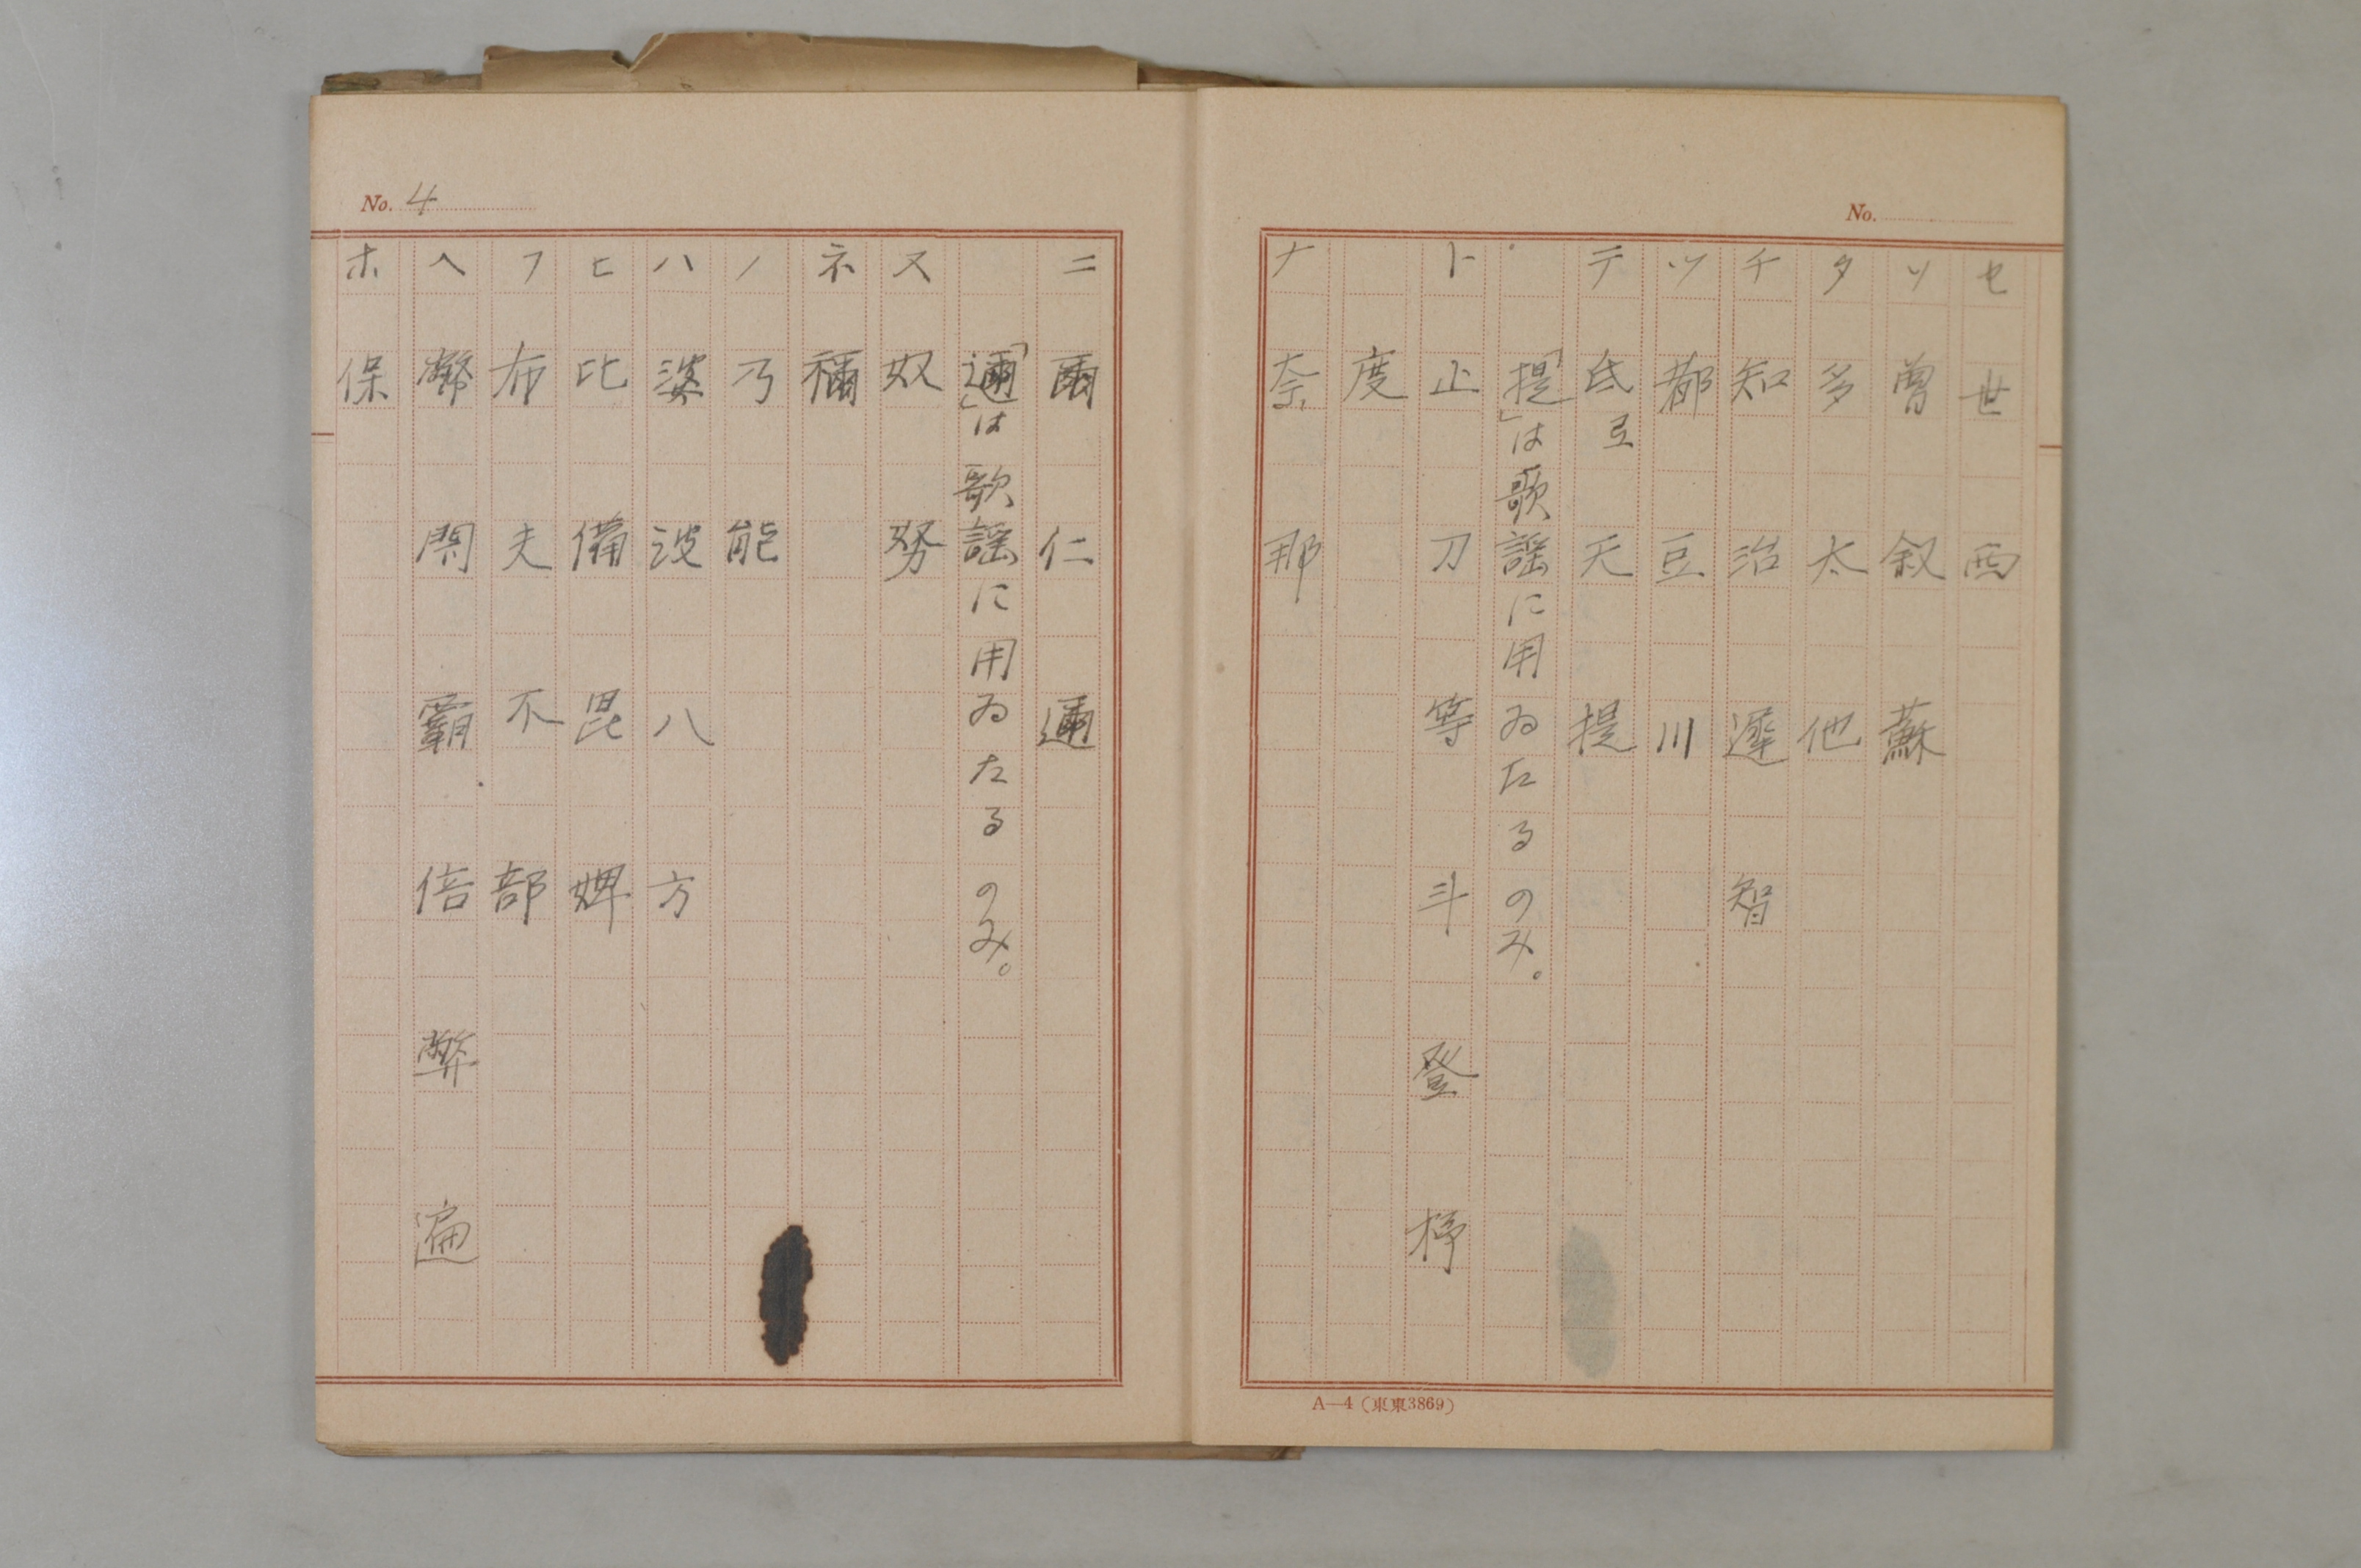 No.
セ 世 西
ソ 曽 叙 蘇
タ 多 太 他
チ 知 治 遅 智
ツ 都 豆 川
テ 氐 互 天 提
「提」は歌謡に用ゐたるのみ。
ト 止 刀 等 斗 登
度
ナ 奈 那
A—4 (東東3869)
No. 4
ニ 爾 仁 邇
「邇」は歌謡に用ゐたるのみ。
ヌ 奴 努
ネ 禰
ノ 乃 能
ハ 婆 波 八 方
ヒ 比 備 毘 婢
フ 布 夫 不 部
ヘ 幣 閇 覇 倍 弊 遍
ホ 保